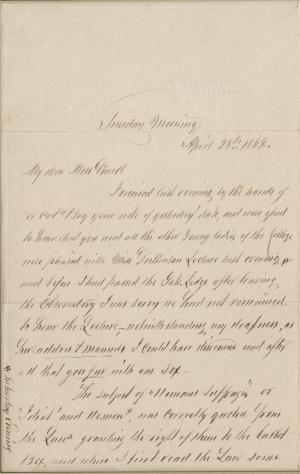 Tuesday Morning
April 28th 1869.
My dear Miss
I received last evening by the hands of
a Col'd Boy your note of yesterday's date, and was glad
to learn that you and all the other Young ladies of the College
were pleased with Miss Dickinson Lecture last evening,
and before I had passed the Gate Lodge after leaving
the Observatory I was sorry we had not remained
to hear the Lecture – notwithstanding my deafness, as
her address & manner I could have discerned and after
all that goes far with our sex.
The subject of "Womans Suffrage" or
"and Women", was correctly quoted from
the Law granting the right of them to the ballot
Box, and when I first read the Law some